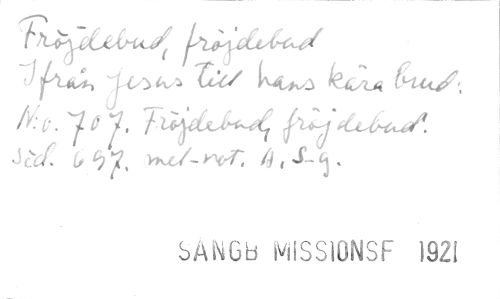 Fröjdebud, fröjdebud
Ifrån Jesus till hans kära brud:
N:o. 707. Fröjdebud, fröjdebud.
sid. 697. mel-not. A. S-g.
SÅNGB MISSIONSF 1921